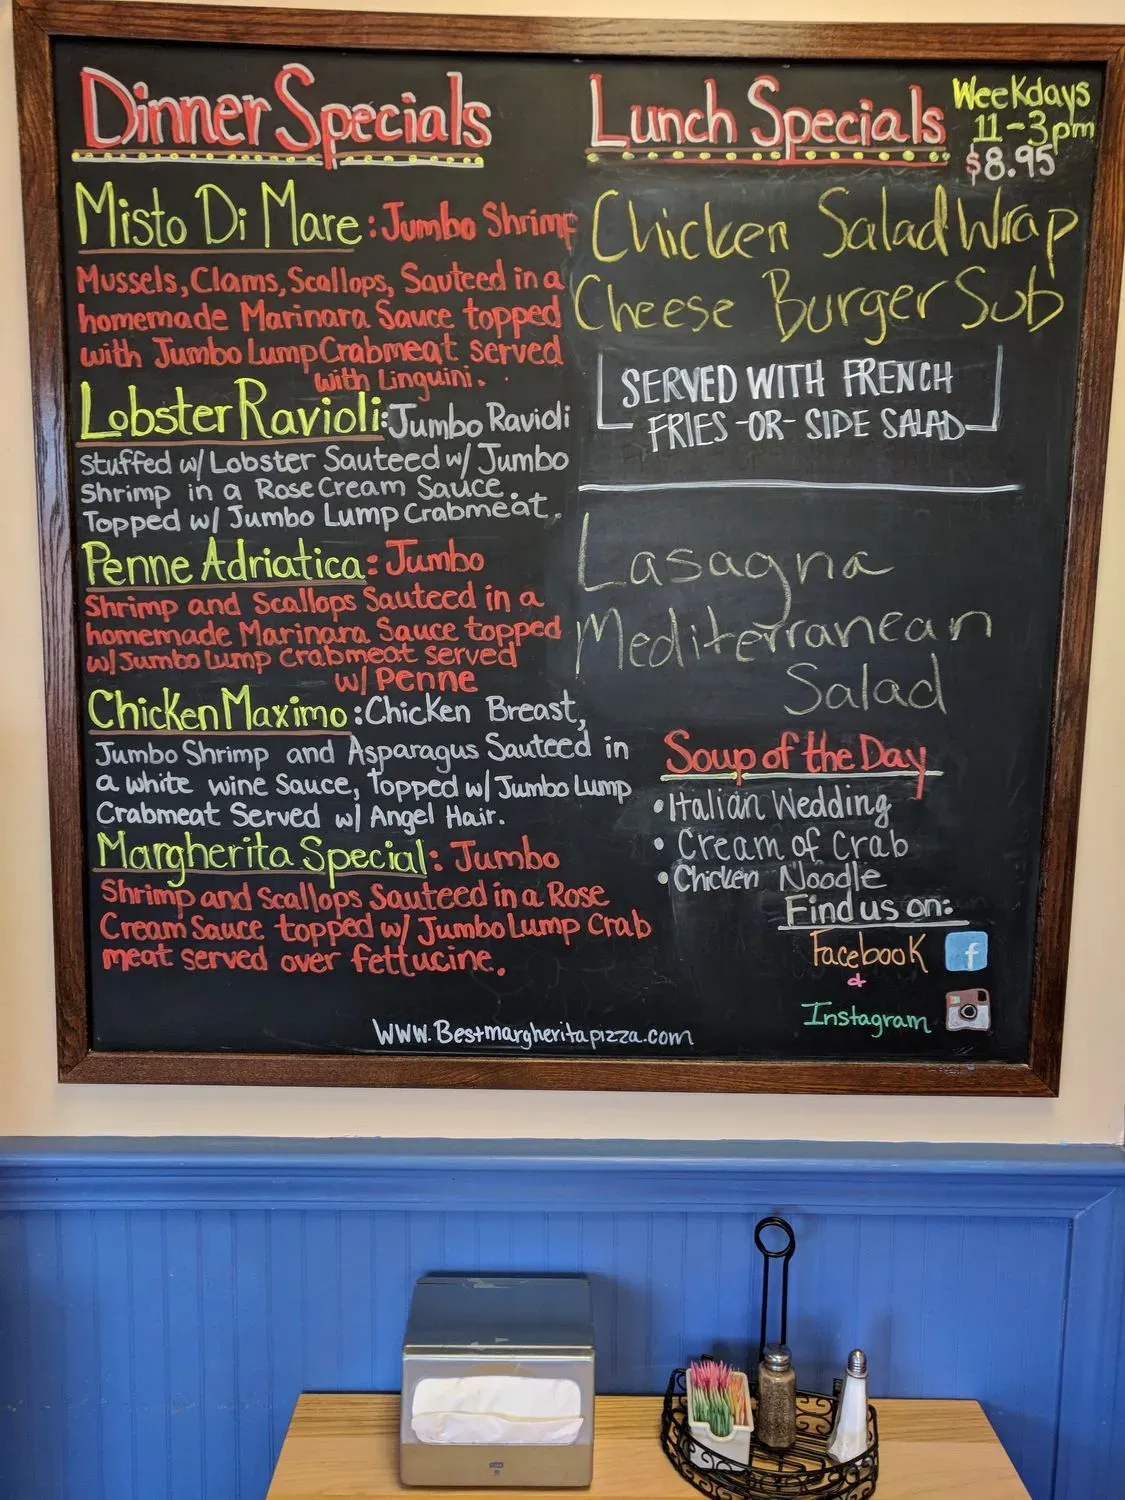 Dinner Specials
Misto Di Mare: Jumbo Shrimp
Mussels, Clams, Scallops, Sauteed in a
homemade Marinara Sauce topped
with Jumbo Lump Crabmeat served
with Linguini.
Lobster Ravioli: Jumbo Ravioli
stuffed w/ Lobster Sauteed w/ Jumbo
Shrimp in a Rose Cream Sauce.
Topped w/ Jumbo Lump Crabmeat.
Penne Adriatica: Jumbo
Shrimp and Scallops Sauteed in a
homemade Marinara Sauce topped
w/ Jumbo Lump Crabmeat served
w/ Penne
Chicken Maximo: Chicken Breast,
Jumbo Shrimp and Asparagus Sauteed in
a white wine Sauce, Topped w/ Jumbo Lump
Crabmeat Served w/ Angel Hair.
Margherita Special: Jumbo
Shrimp and Scallops Sauteed in a Rose
Cream Sauce topped w/ Jumbo Lump Crab
meat served over fettucine.
Lunch Specials
Weekdays
11-3pm
$8.95
Chicken Salad Wrap
Cheese Burger Sub
SERVED WITH FRENCH
FRIES -OR- SIDE SALAD
Lasagna
Mediterranean
Salad
Soup of the Day
• Italian Wedding
• Cream of Crab
• Chicken Noodle
Find us on:
Facebook f
&
Instagram
WWW.Bestmargheritapizza.com